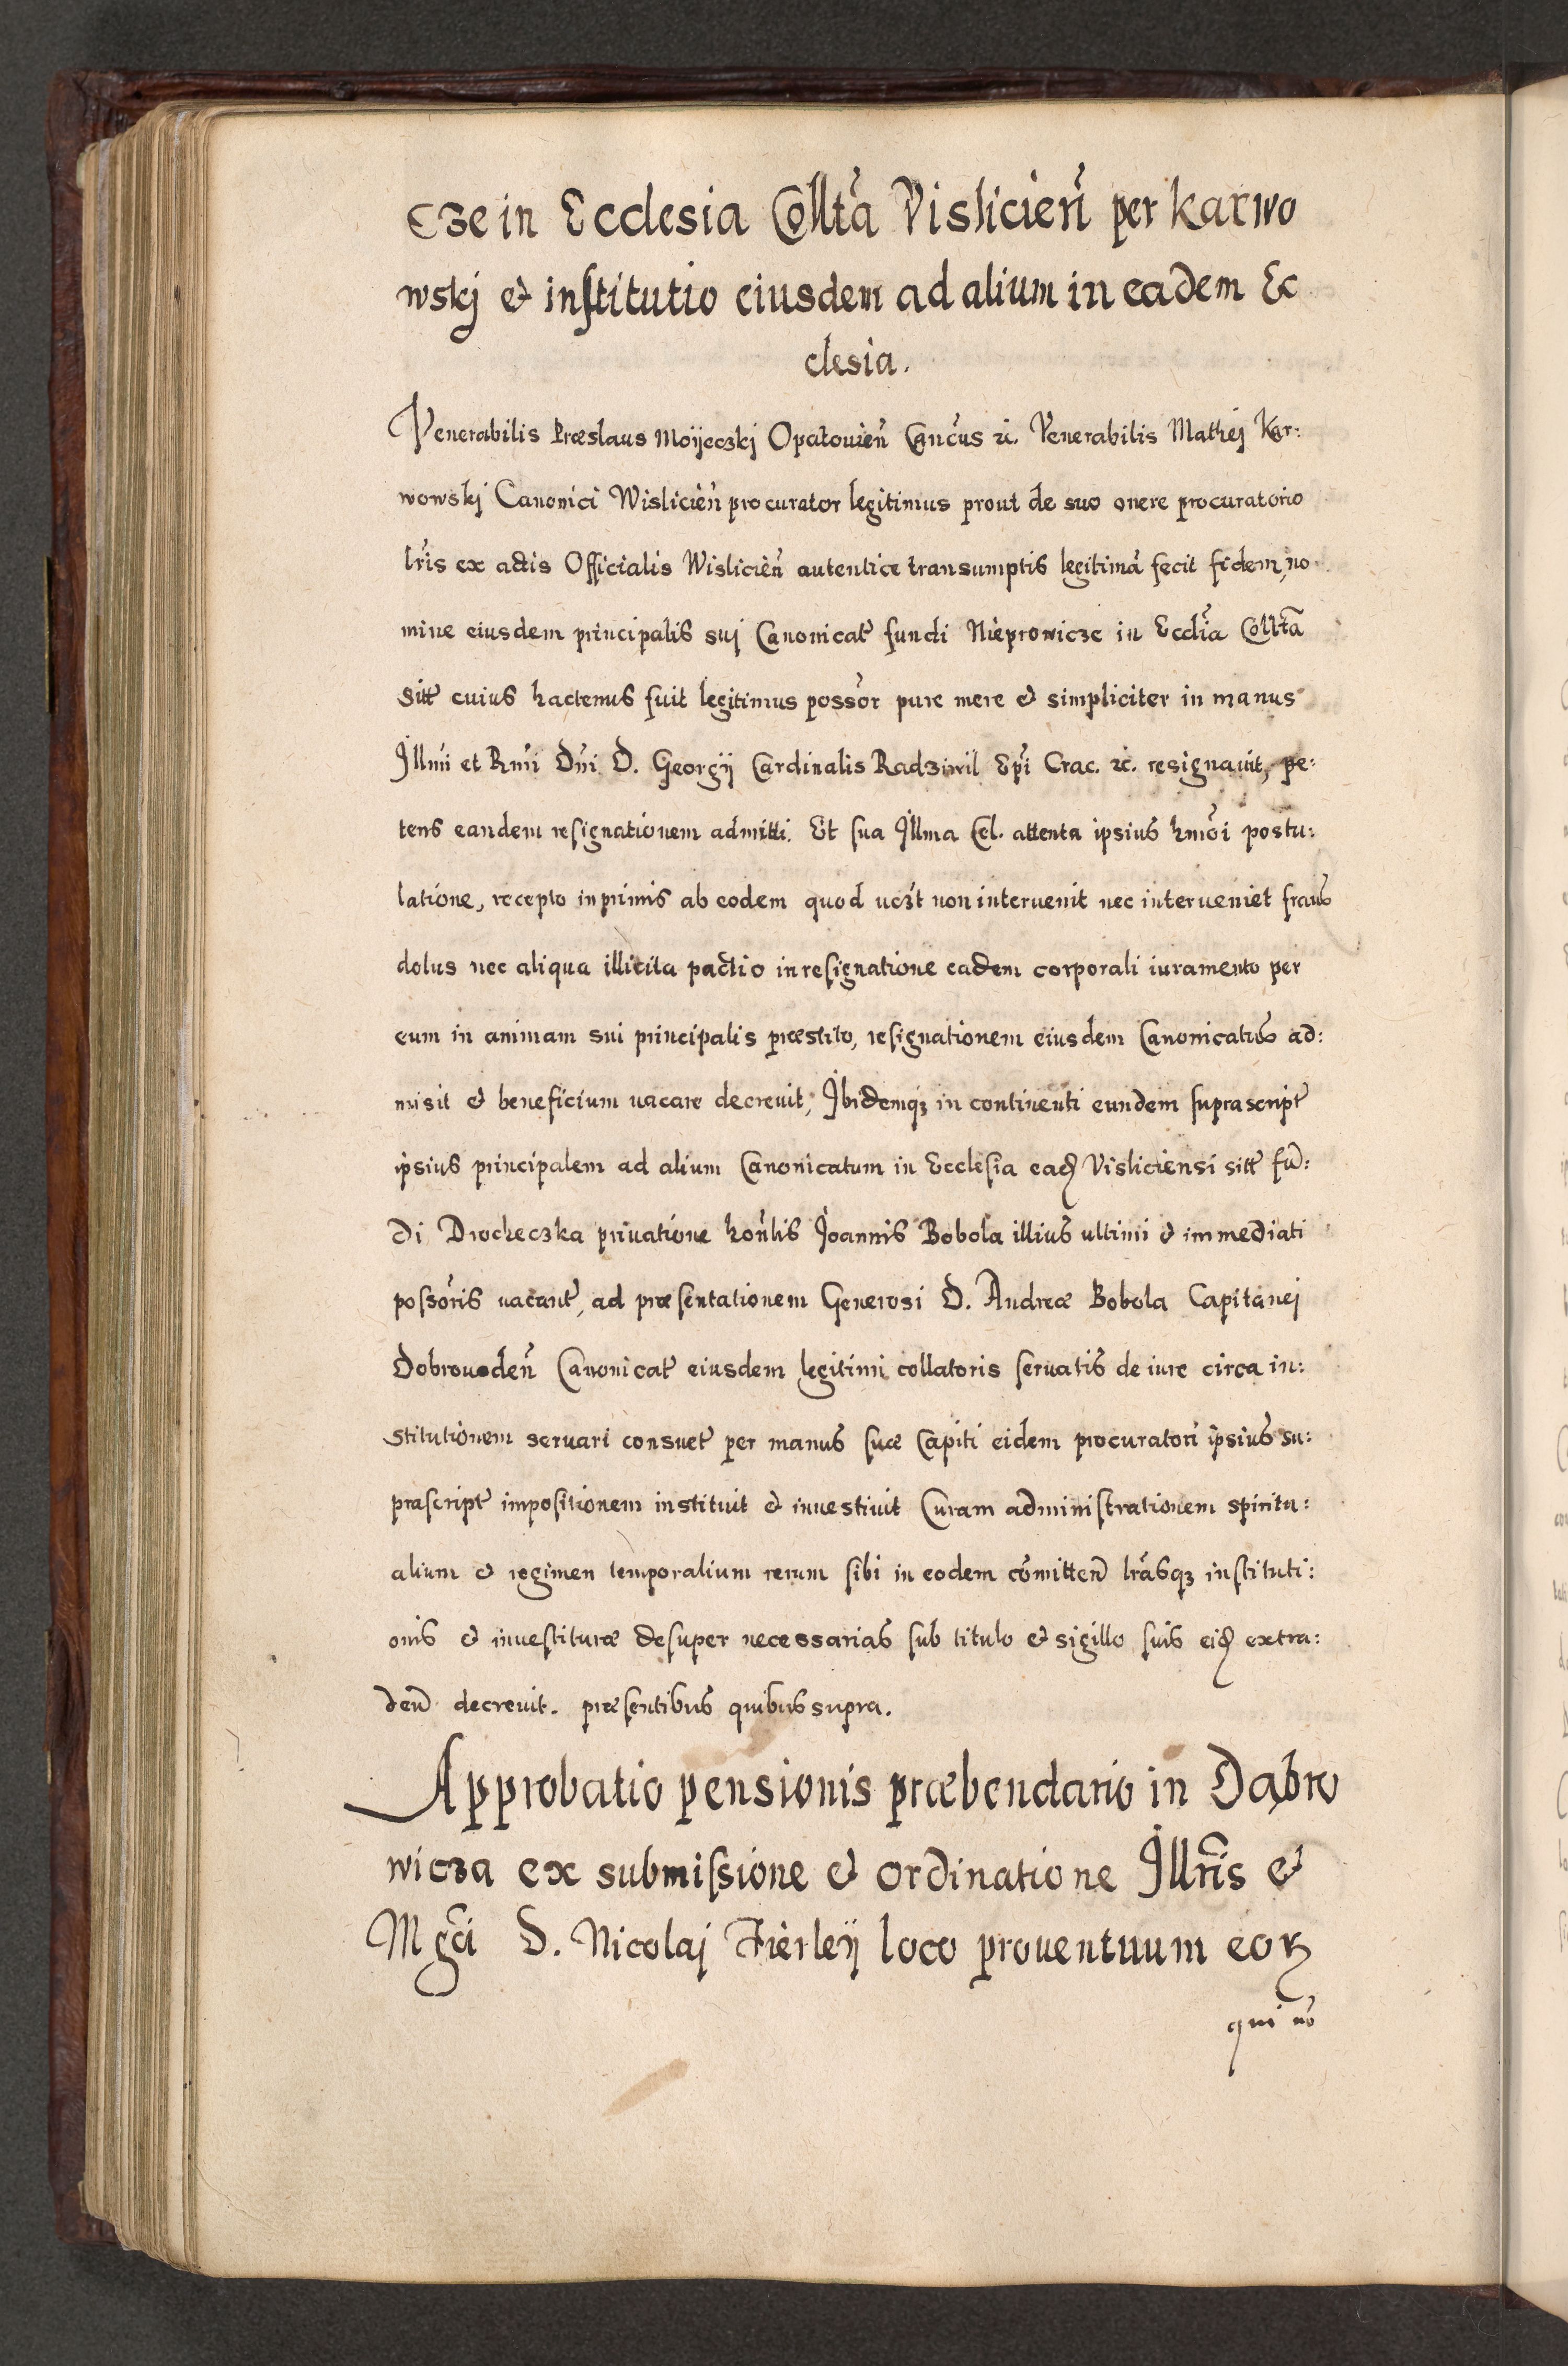 cze in Ecclesia Collta Vislicien per Karwo
wskj et institutio eiusdem ad alium in eadem Ec
clesia.
Venerabilis Præslaus Moijeczkj Opatouien Cancus etc. Venerabilis Mathej Kar:
wowskj Canonici Wislicien procurator legitimus prout de suo onere procuratorio
lris ex actis Officialis Wislicien autentice transumptis legitimã fecit fidem, no
mine eiusdem principalis suj Canonicat fundi Nieprowicze in Ecclia Collta
sitt cuius hactenus fuit legitimus possor pure mere et simpliciter in manus
Illmi et Rmi Dni D. Georgij Cardinalis Radziwil Epi Crac. etc. resignauit, pe:
tens eandem resignationem admitti. Et sua Illma Cel. attenta ipsius hmoi postu:
latione, recepto inprimis ab eodem quod uczt non interuenit nec interueniet fraus
dolus nec aliqua illicita pactio in resignatione eadem corporali iuramento per
eum in animam sui principalis præstito, resignationem eiusdem Canonicatus ad:
misit et beneficium uacare decreuit, Ibidemqz in continenti eundem suprascript
ipsius principalem ad alium Canonicatum in Ecclesia ead Visliciensi sitt fũ:
di Drocheczka priuatione honlis Joannis Bobola illius ultimi et immediati
possoris uacant, ad præsentationem Generosi D. Andreæ Bobola Capitanej
Dobrouoden Canonicat eiusdem legitimi collatoris seruatis de iure circa in:
stitutionem seruari consuet per manus suæ Capiti eidem procuratori ipsius su:
prascript impositionem instituit et inuestiuit Curam administrationem spiritu:
alium et regimen temporalium rerum sibi in eodem cõmitten lrasqz instituti:
onis et inuestituræ desuper necessarias sub titulo et sigillo suis eid extra:
den decreuit. præsentibus quibus supra.
Approbatio pensionis præbendario in Dąbro
wicza ex submissione et ordinatione Illris et
Mgci D. Nicolaj Fierleij loco prouentuum eoꝝ
qui nõ